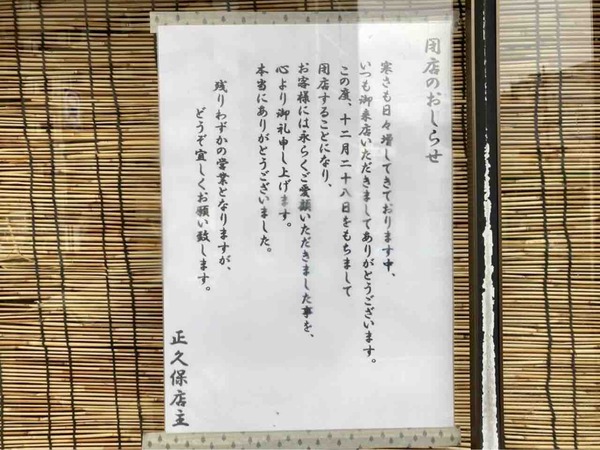 閉店のおしらせ
寒さも日々増してきております中、
いつも御来店いただきましてありがとうございます。
この度、十二月二十八日をもちまして
閉店することになり、
お客様には永らくご愛顧いただきました事を、
心より御礼申し上げます。
本当にありがとうございました。
残りわずかの営業となりますが、
どうぞ宜しくお願い致します。
正久保店主